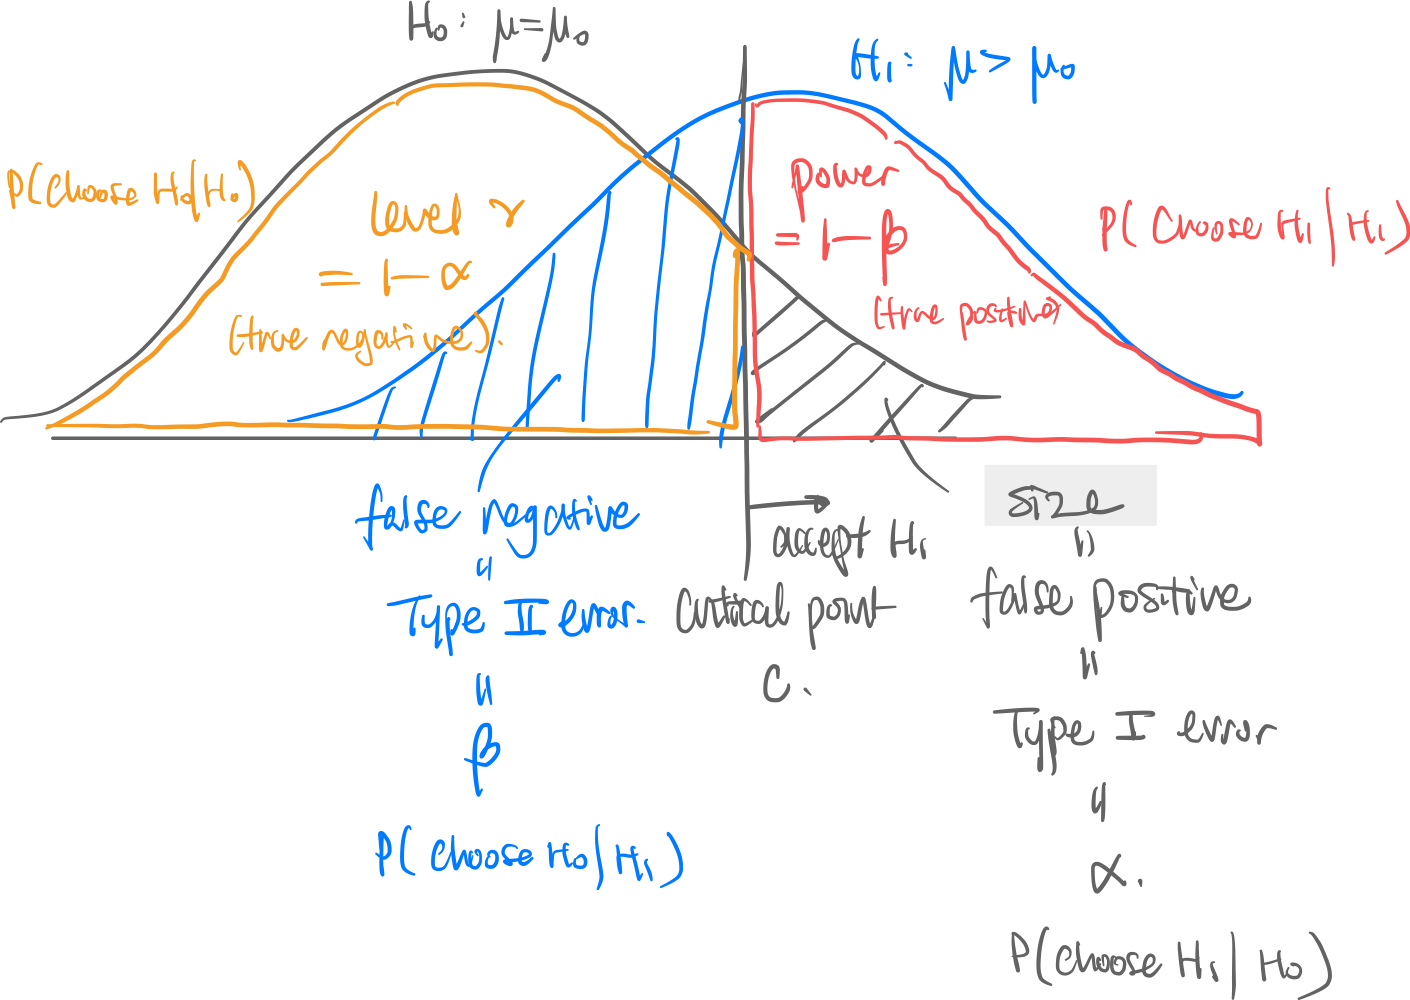 H₀: μ=μ₀
H₁: μ> μ₀
P(choose H₀|H₀)
level γ
= 1-α
(true negative).
power
= 1-β
(true positive)
P( choose H₁ | H₁)
false negative
=
Type II error.
=
β
P( choose H₀ | H₁ )
accept H₁
critical point
C.
size
=
false positive
=
Type I error
=
α.
P(choose H₁ | H₀ )